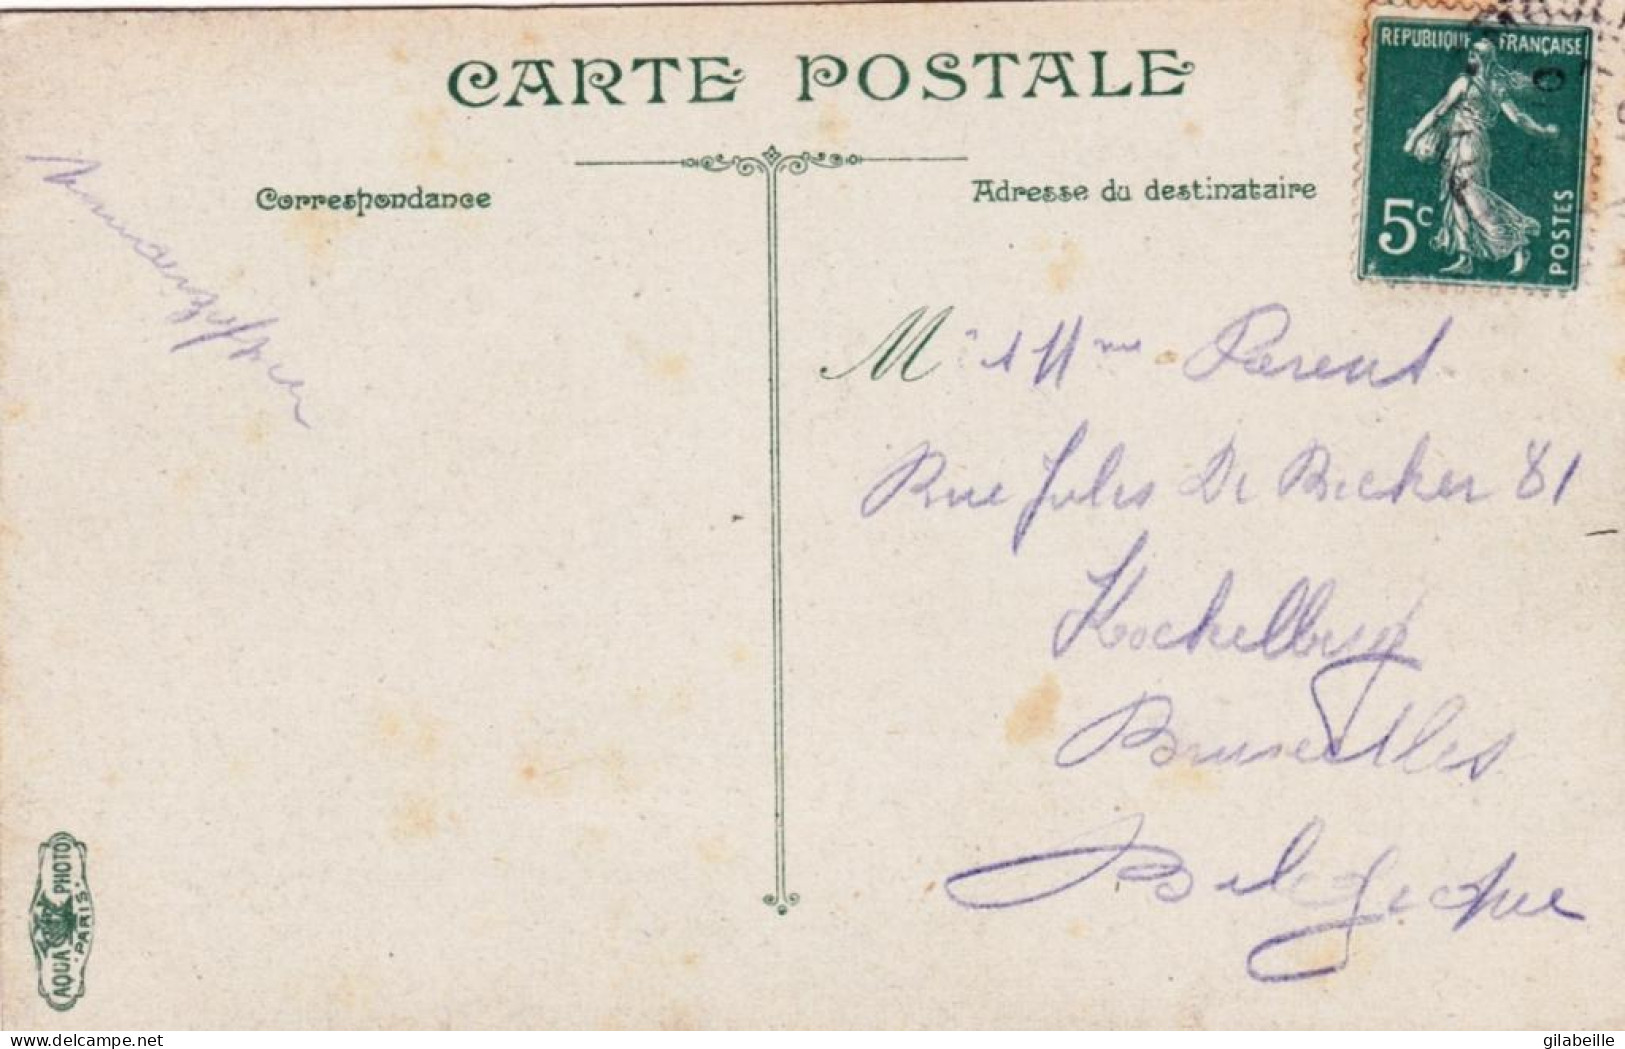 CARTE POSTALE
RÉPUBLIQUE FRANÇAISE
5c
POSTES
Correspondance
Adresse du destinataire
Mr & Mme Parent
Rue Jules De Becker 81
Koekelberg
Bruxelles
Belgique
AQUA PHOTO
PARIS
delcampe.net
gilabeille